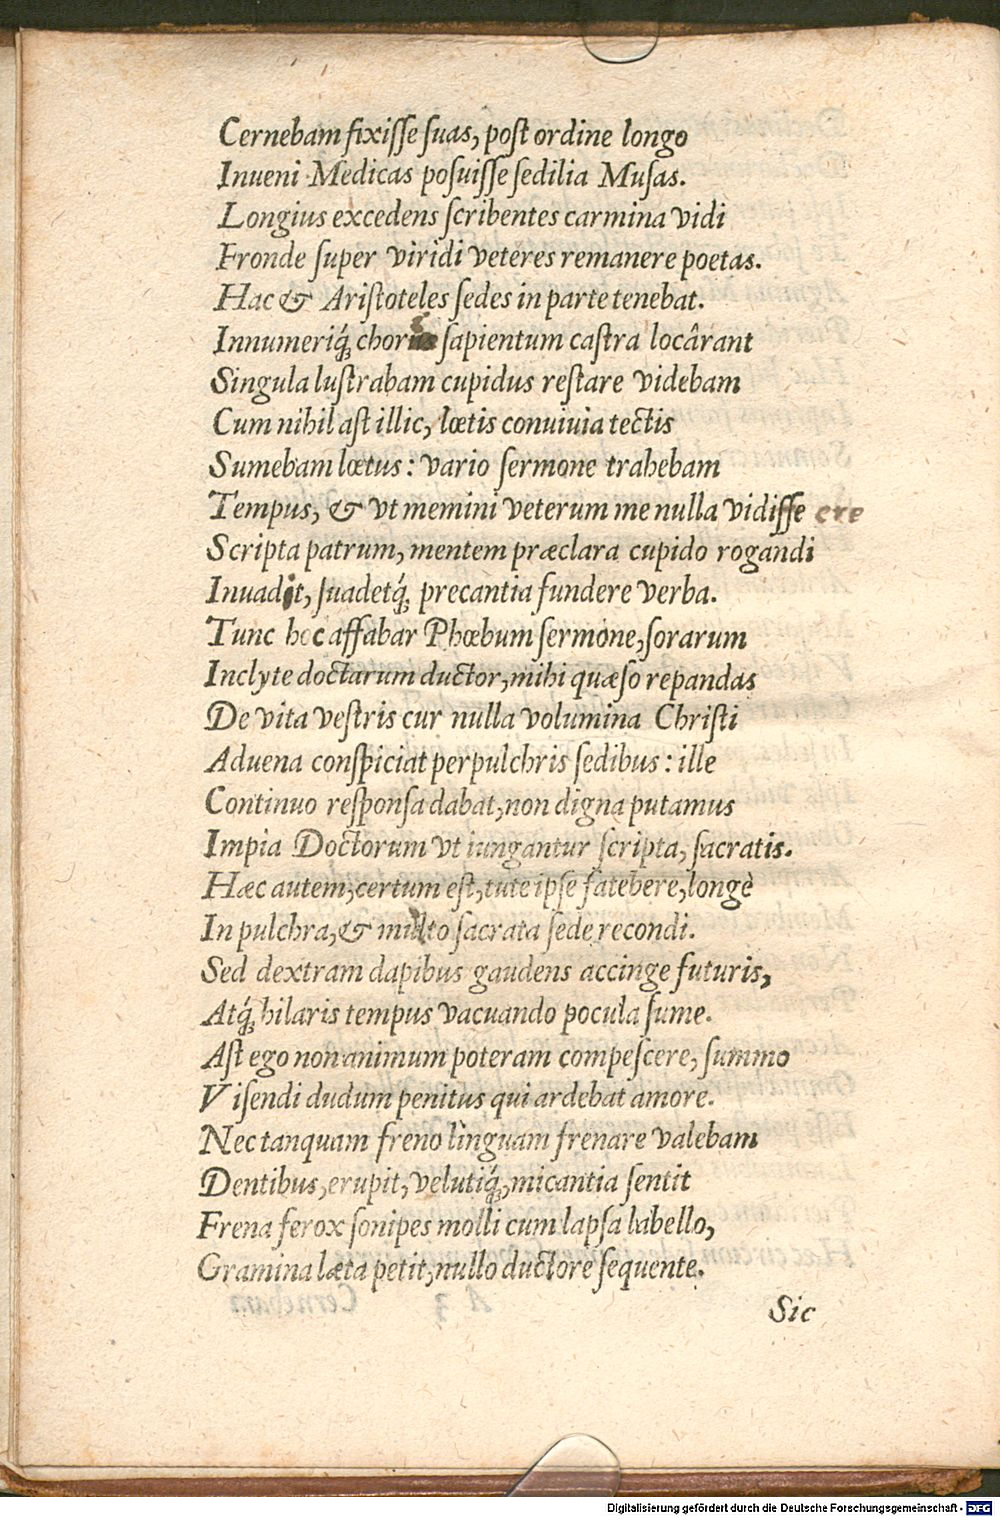 Cernebam fixiſſe ſuas, poſt ordine longo
Inueni Medicas poſuiſſe ſedilia Muſas.
Longius excedens ſcribentes carmina vidi
Fronde ſuper viridi veteres remanere poetas.
Hac & Ariſtoteles ſedes in parte tenebat.
Innumeriq́; chorus ſapientum caſtra locârant
Singula luſtrabam cupidus reſtare videbam
Cum nihil aſt illic, lœtis conuiuia tectis
Sumebam lœtus: vario ſermone trahebam
Tempus, & vt memini veterum me nulla vidiſſe ere
Scripta patrum, mentem præclara cupido rogandi
Inuadit, ſuadetq́; precantia fundere verba.
Tunc hoc affabar Phœbum ſermone, ſorarum
Inclyte doctarum ductor, mihi quæſo repandas
De vita veſtris cur nulla volumina Chriſti
Aduena conſpiciat perpulchris ſedibus: ille
Continuo reſponſa dabat, non digna putamus
Impia Doctorum vt iungantur ſcripta, ſacratis.
Hæc autem, certum eſt, tute ipſe fatebere, longè
In pulchra, & multo ſacrata ſede recondi.
Sed dextram dapibus gaudens accinge futuris,
Atq́; hilaris tempus vacuando pocula ſume.
Aſt ego non animum poteram compeſcere, ſummo
Viſendi dudum penitus qui ardebat amore.
Nec tanquam freno linguam frenare valebam
Dentibus, erupit, velutiq́; micantia ſentit
Frena ferox ſonipes molli cum lapſa labello,
Gramina læta petit, nullo ductore ſequente.
Sic
Digitalisierung gefördert durch die Deutsche Forschungsgemeinschaft - DFG